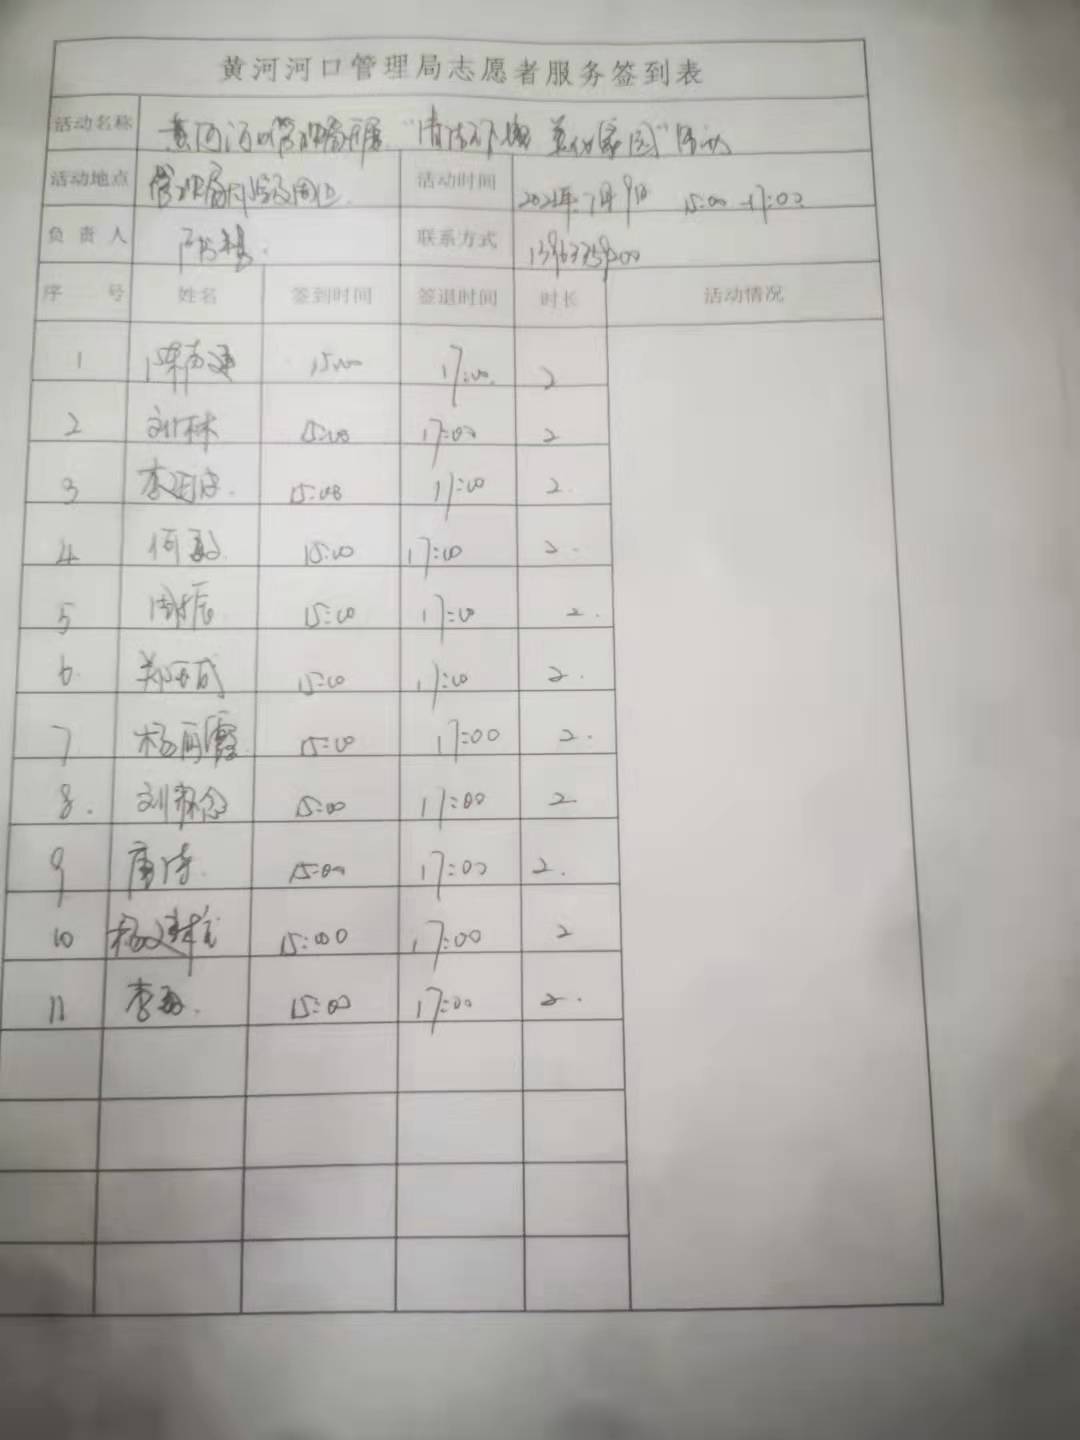 黄河河口管理局志愿者服务签到表
活动名称 黄河河口管理局开展“清洁 美化家园”活动
活动地点 管理局 及周边 活动时间 2021年7月9日 15:00-17:00
负责人 联系方式
序号 姓名 签到时间 签退时间 时长 活动情况
1 15:00 17:00 2
2 刘林 15:00 17:00 2
3 李 15:00 17:00 2
4 何 15:00 17:00 2
5 周振 15:00 17:00 2
6 郑 15:00 17:00 2
7 杨丽霞 15:00 17:00 2
8 刘 15:00 17:00 2
9 唐涛 15:00 17:00 2
10 杨建柱 15:00 17:00 2
11 李 15:00 17:00 2